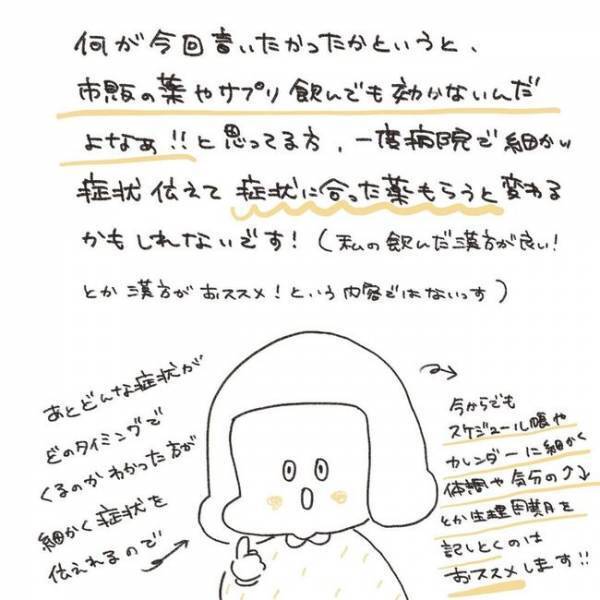 何が今回書いたかったかというと、
市販の薬やサプリ飲んでも効かないんだ
よなぁ!!と思ってる方、一度病院で細かい
症状伝えて症状に合った薬もらうと変わる
かもしれないです!(私の飲んだ漢方が良い!
とか漢方がおススメ!という内容ではないっす)
あとどんな症状が
どのタイミングで
くるのかわかった方が
細かく症状を
伝えれるので
今からでも
スケジュール帳や
カレンダーに細かく
体調や気分の↑↓
とか生理周期を
記しとくのは
おススメします!!